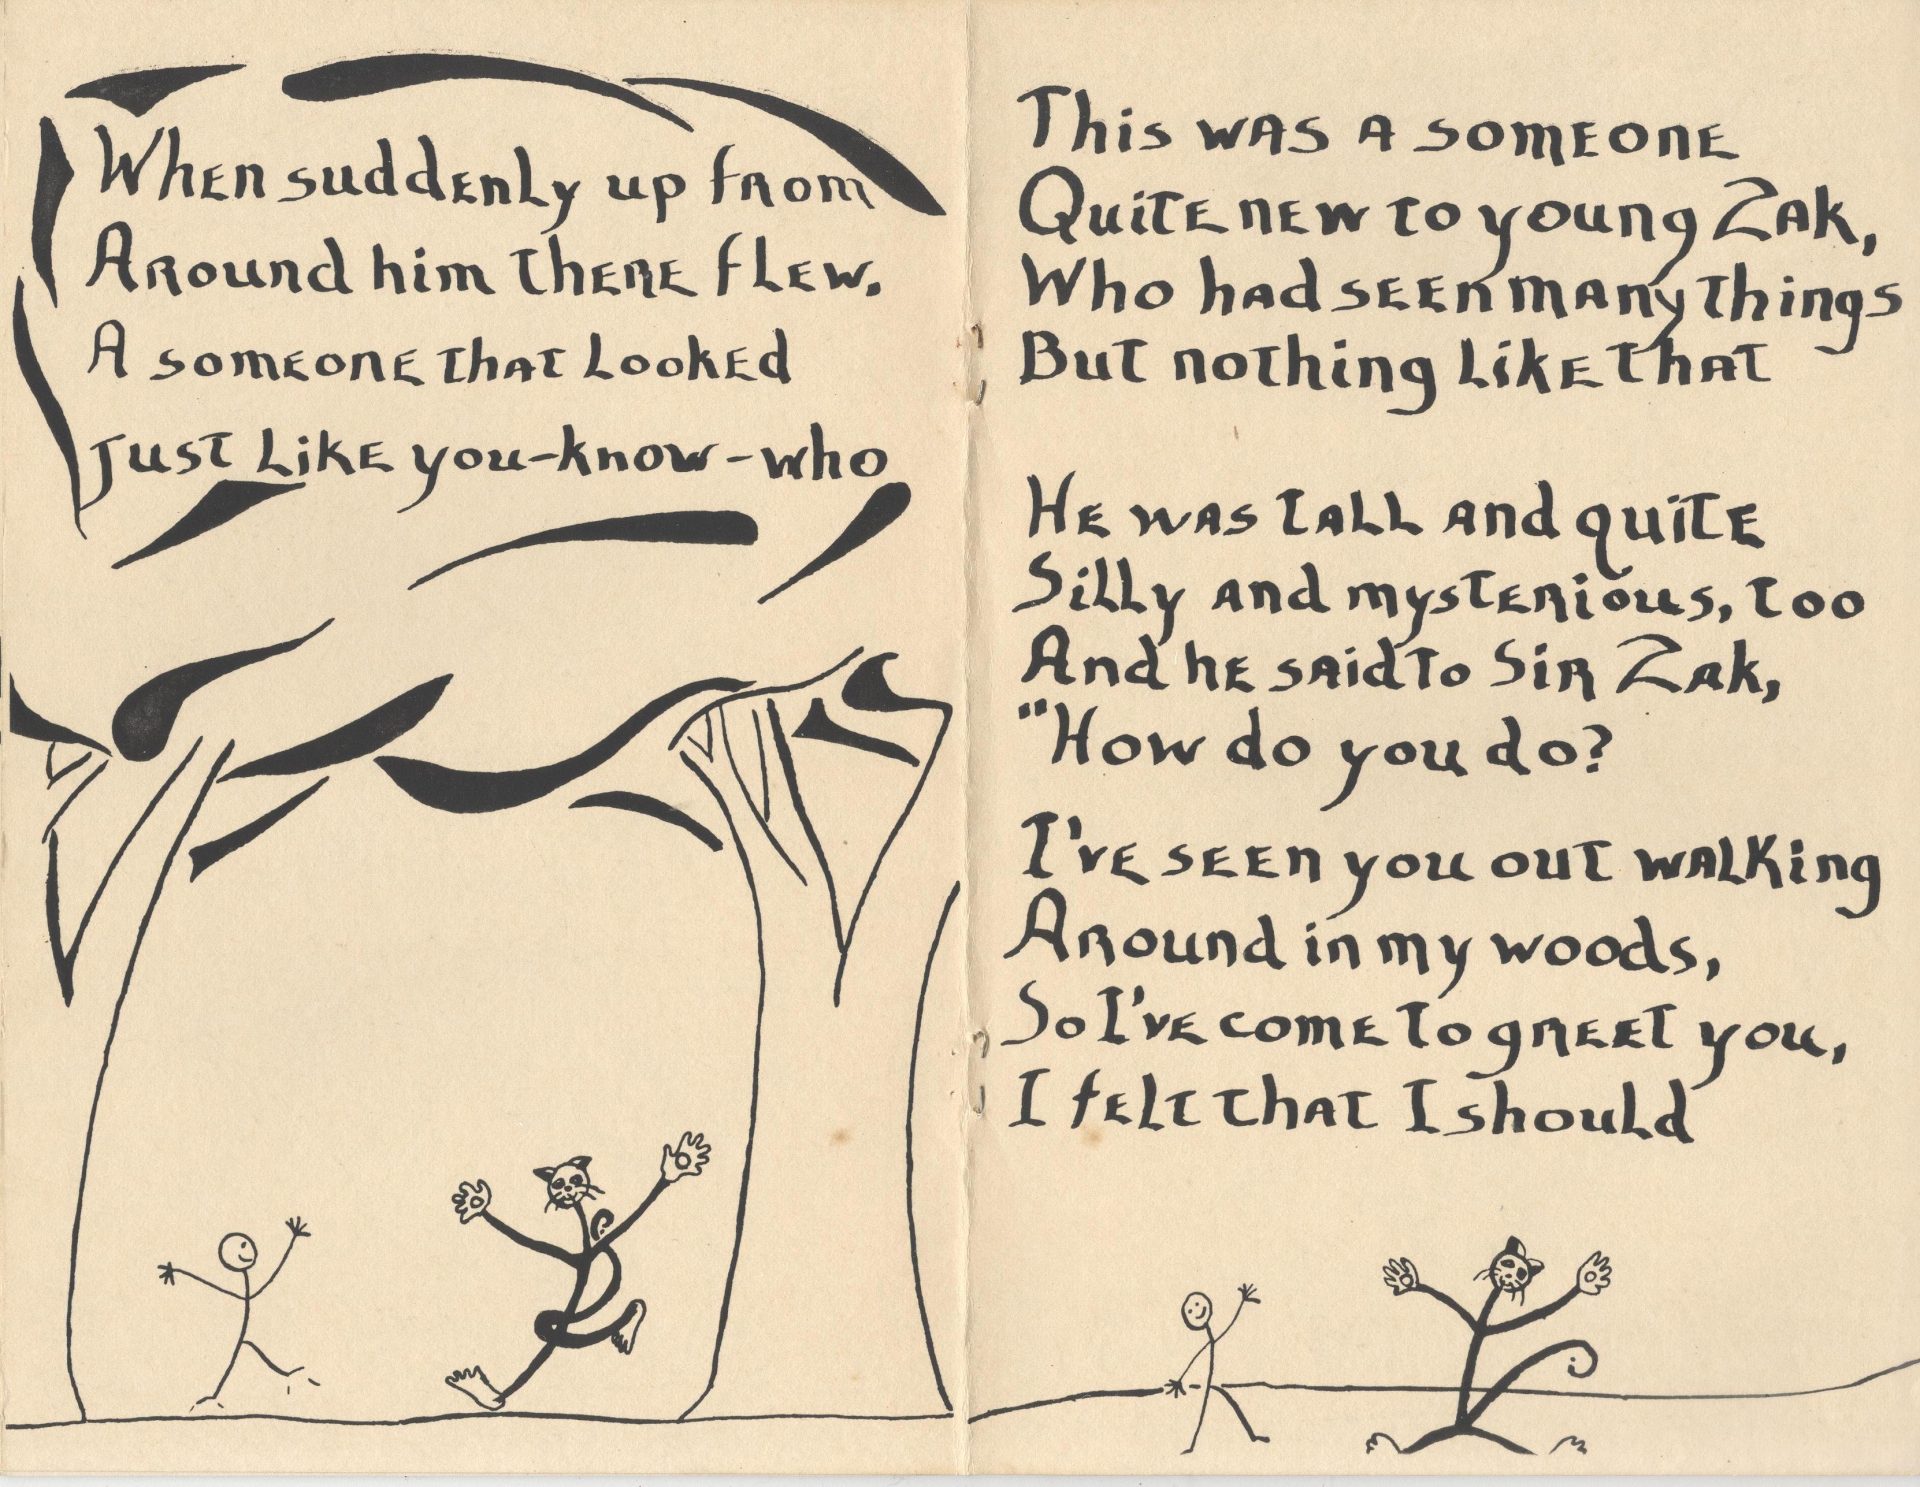 When suddenly up from
Around him there flew.
A someone that looked
Just like you-know-who
This was a someone
Quite new to young Zak,
Who had seen many things
But nothing like that
He was tall and quite
Silly and mysterious, too
And he said to Sir Zak,
"How do you do?
I've seen you out walking
Around in my woods,
So I've come to greet you,
I felt that I should